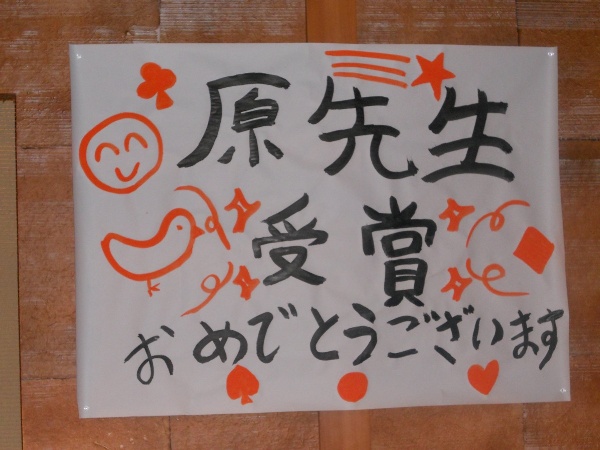 原先生
受賞
おめでとうございます